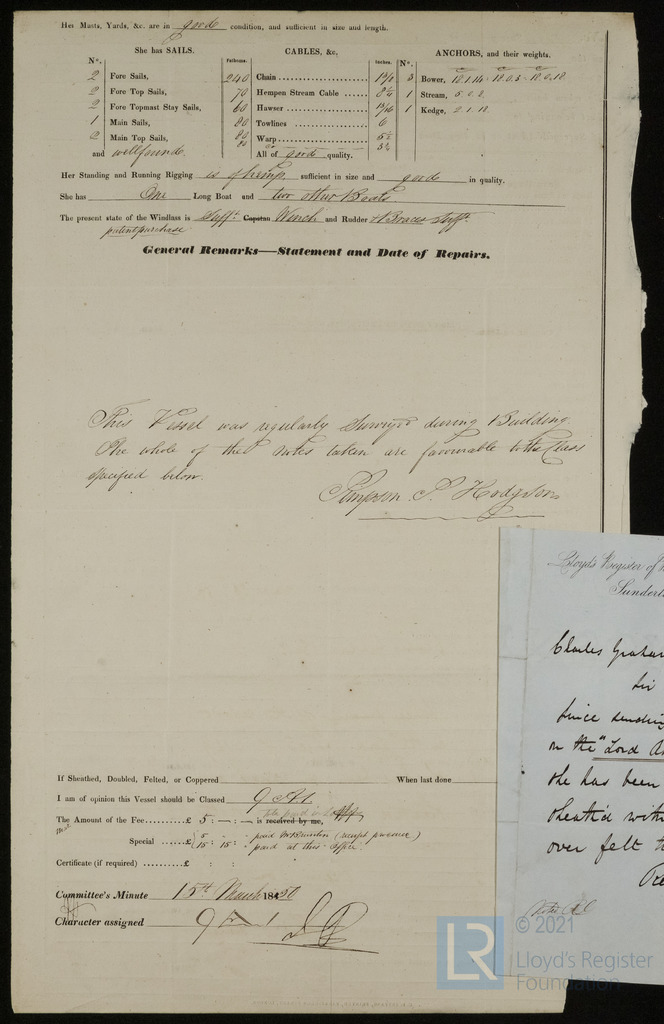 Her Masts, Yards, &c. are in good condition, and sufficient in size and length.
She has SAILS.
CABLES, &c.
ANCHORS, and their weights.
No.
Fathoms.
Inches.
No.
2 Fore Sails,
240 Chain
3 Bower,
2 Fore Top Sails,
70 Hempen Stream Cable
1 Stream,
2 Fore Topmast Stay Sails,
60 Hawser
13/16
1 Kedge, 2.1.12
1 Main Sails,
80 Towlines
6
2 Main Top Sails,
80 Warp
and well found.
All of good quality.
Her Standing and Running Rigging is of hemp, sufficient in size and good in quality.
She has One Long Boat and two other Boats
The present state of the Windlass is Sufft. Capstan Winch and Rudder & Braces Sufft.
patent purchase
General Remarks—Statement and Date of Repairs.
This Vessel was regularly Surveyed during Building.
The whole of the notes taken are favourable to the Class
specified below.
Simpson P. Hodgson
If Sheathed, Doubled, Felted, or Coppered
When last done
I am of opinion this Vessel should be Classed 9 A.1.
The Amount of the Fee £ 5 : — : — is received by me,
Special £ 5 - - paid (receipt
15 : 15 : - paid at this office.
Certificate (if required) £ : :
Committee's Minute 15th March 1850
Character assigned 9 A 1
Lloyd's Register of
Sunderl
Charles Graham
Sir
Since sending
on the "Lord A
she has been
sheath'd with
over felt
© 2021
LR
Lloyd's Register
Foundation